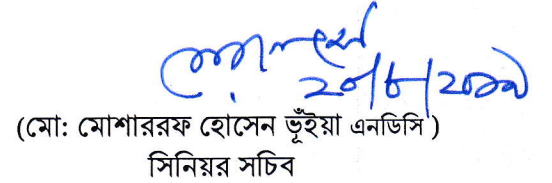 ২০/৮/২০১৯
(মো: মোশাররফ হোসেন ভূঁইয়া এনডিসি)
সিনিয়র সচিব